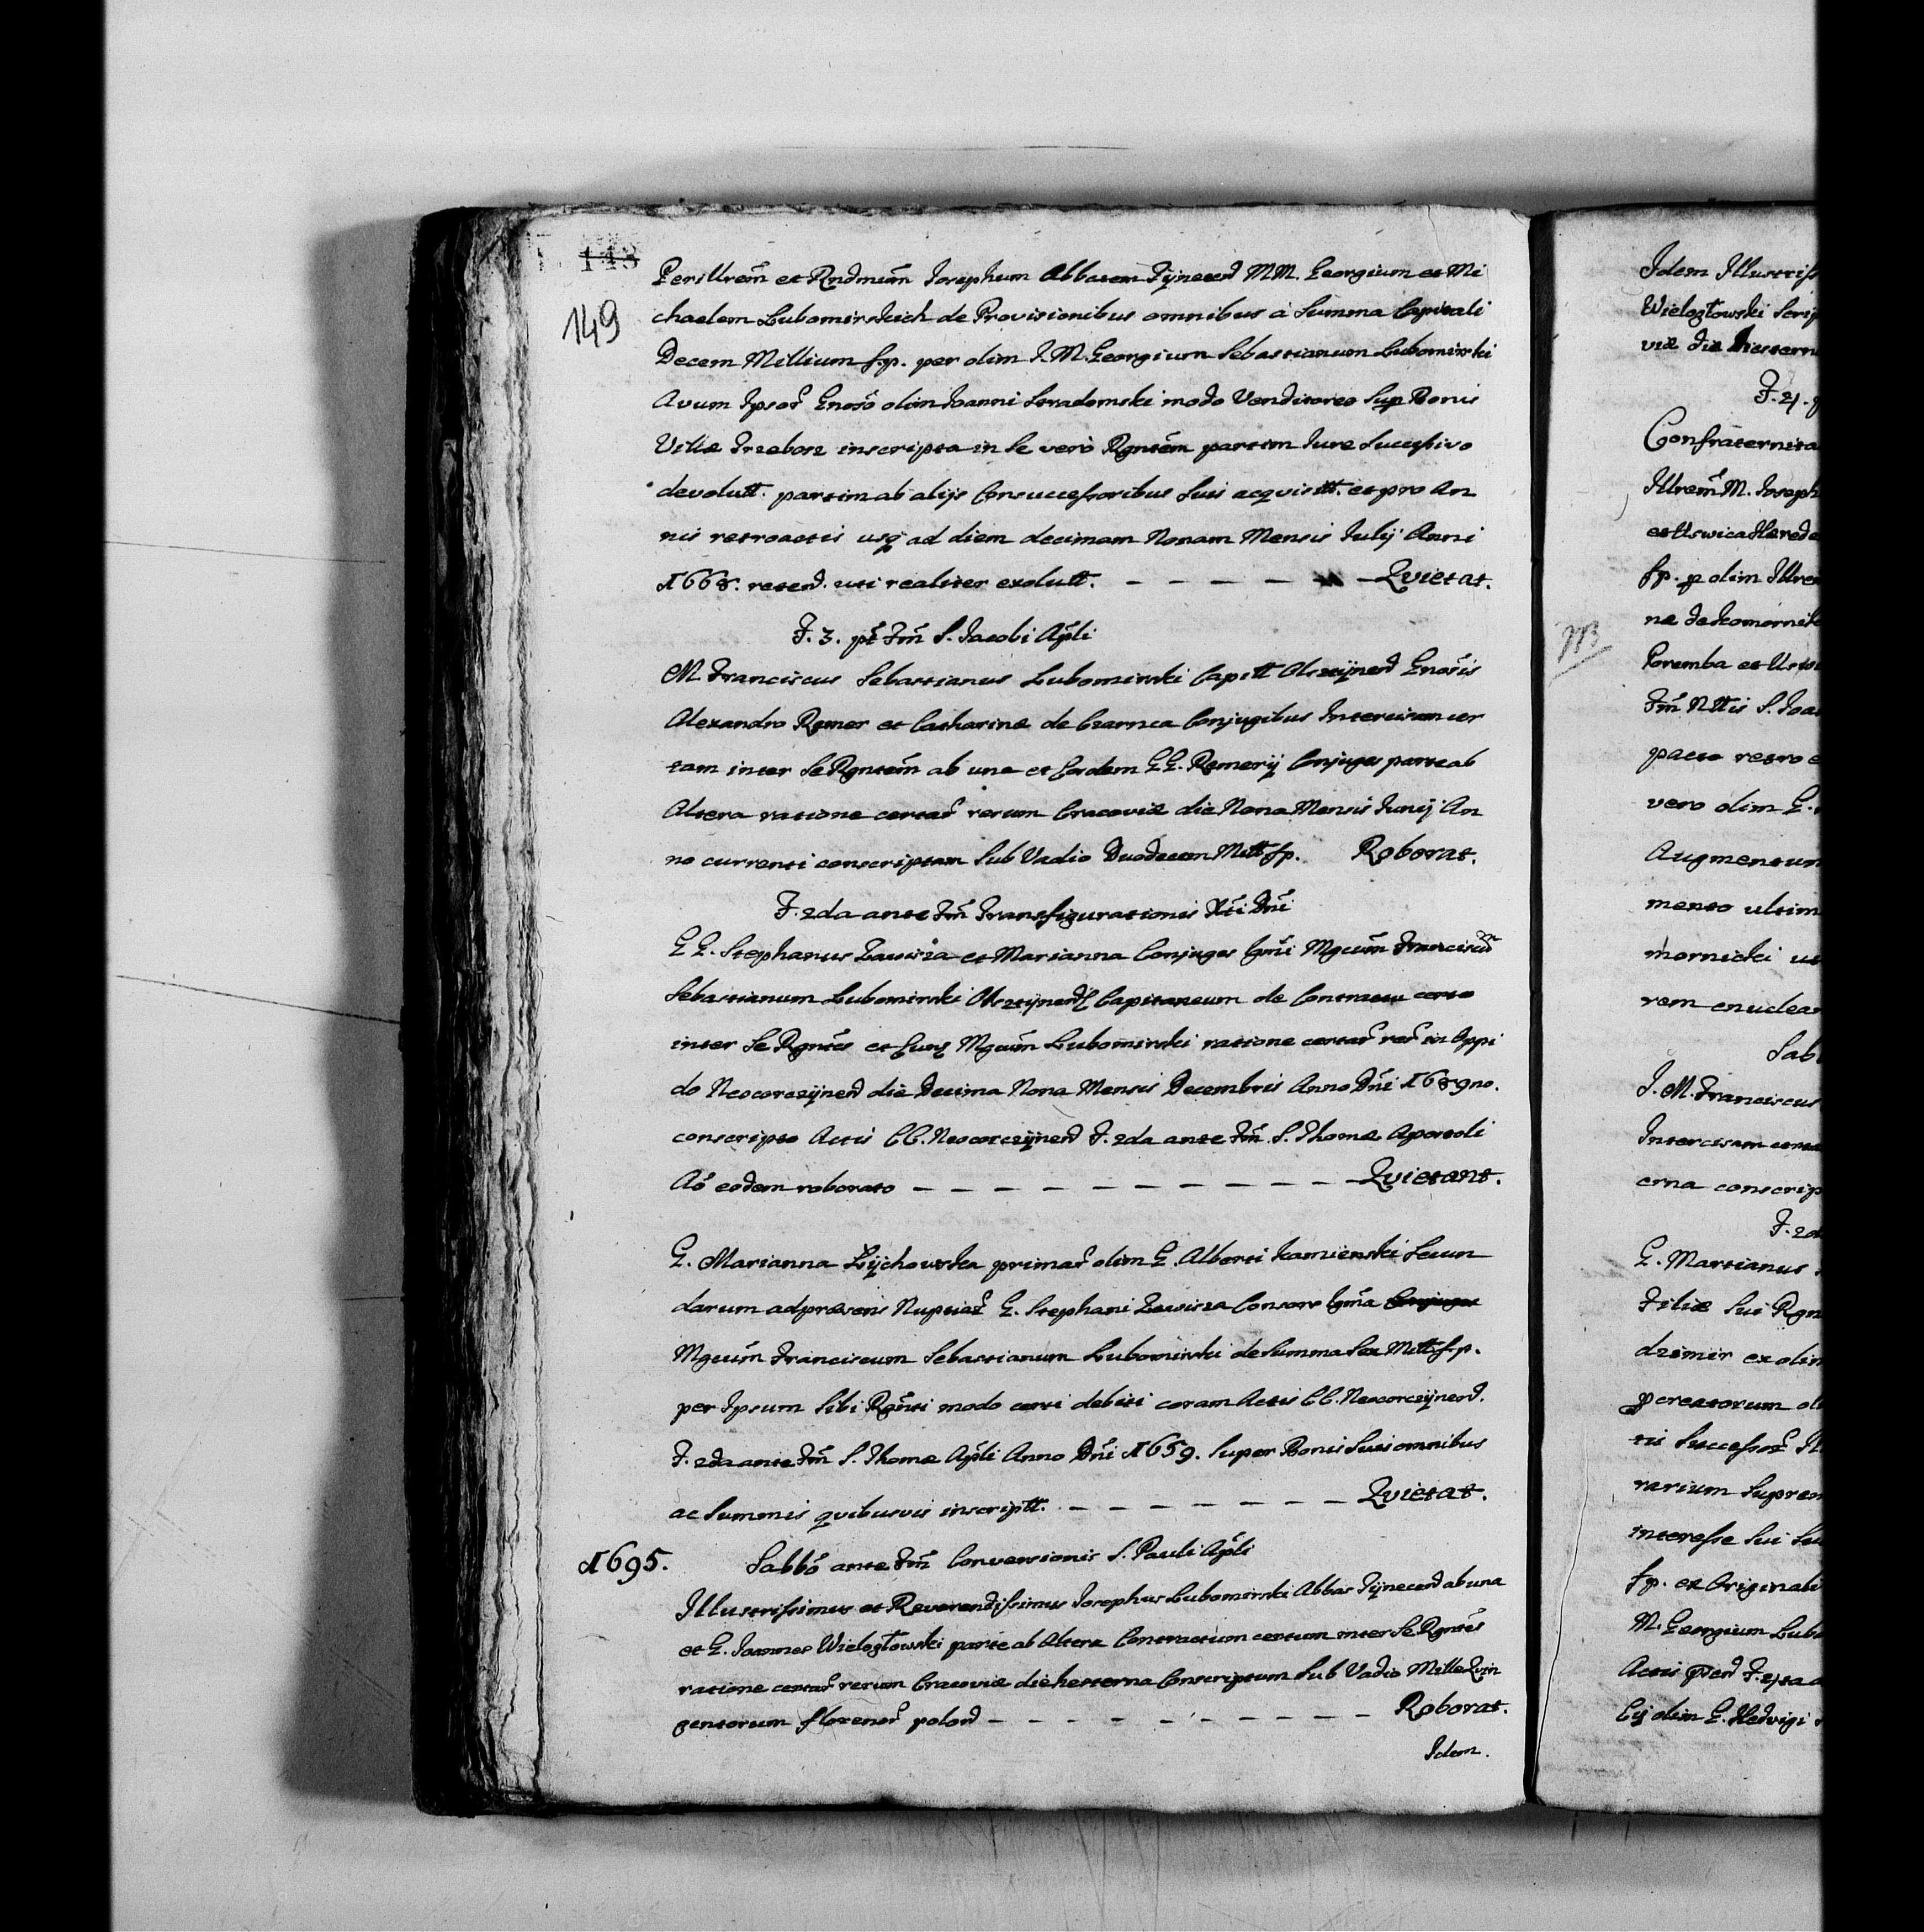 148
149
Perillrem̃ et Rndmum̃ Josephum Abbatem Tÿnecen MM. Georgium et Mi
chaelem Lubomirskich de Provisionibus omnibus à Summa Capitali
Decem Millium f.p. per olim I. M. Georgium Sebastianum Lubomirski
Avum Ipsor̃ Gnoso olim Joanni Stradomski modo Venditoreo Sup Bonis
Villæ Trzebosz inscripta in Se verò Rgntem̃ partim Jure Successivo
devolutt. partim ab alijs Consuccessoribus Suis acquisitt. et pro An
nis retroactis usq ad diem decimam Nonam Mensis Julij Anni
1668. retend. uti realiter exolutt. – – – – – Qvietat.
F. 3. pt Fm̃ S. Jacobi Apli
M Franciscus Sebastianus Lubomirski Capitt Olsztÿnen Gnosis
Alexandro Remer et Catharinæ de Czernca Conjugibus Intercisam cer
tam inter Se Rgntem̃ ab una et Eosdem GG. Remerij Conjuges parte ab
Altera ratione certar̃ rerum Cracoviæ die Nona Mensis Junij An
no currenti conscriptam Sub Vadio Duodecem Mill fp. Roborat.
F. 2da ante Fm̃ Transfigurationis Xti Dni
GG. Stephanus Zawisza et Marianna Conjuges Gnri Mgcum̃ Franciscum
Sebastianum Lubomirski Olsztÿnen Capitaneum de Contractu certo
inter Se Rgntes et Eund Mgcum̃ Lubomirski ratione certar̃ rer̃ in Oppi
do Neocorczÿnen die Decima Nona Mensis Decembris Anno Dni 1689no.
conscripto Actis CC. Neocorczÿnen F. 2da ante Fm̃ S. Thomæ Apostoli
Aõ eodem roborato – – – – – – – – – – Qvietant.
G. Marianna Lÿchowska primar̃ olim G. Alberti Kamienski Secun
darum ad præsens Nuptiar̃ G. Stephani Zawisza Consors Gnra Conjuges
Mgcum̃ Franciscum Sebastianum Lubomirski de Summa Sex Mill fp.
per Ipsum Sibi Rgnti modo certi debiti coram Actis CC. Neocorczÿnen.
F. 2da ante Fm̃ S. Thomæ Apli Anno Dni 1659. Super Bonis Suis omnibus
ac Summis qvibusvis inscriptt. – – – – – – – Qvietat.
1695. Sabbõ ante Fm̃ Conversionis S. Pauli Apli
Illustrissimus et Reverendissimus Josephus Lubomirski Abbas Tÿnecen ab una
et G. Joannes Wielogłowski parte ab Altera Contractum certum inter Se Rgntes
ratione certar̃ rerum Cracoviæ die hesterna Conscriptum Sub Vadio Mille Qvin
gentorum florenor̃ polon – – – – – – – – – – Roborat.
Idem.
Idem Illustriss
Wielogłowski Scrip
viæ die hestern
F. 4.
Confraternita
Illrem̃ M. Joseph
fp. p olim Illre
Poremba et
Fm̃ Nttis S. Joa
pacto retro
vero olim G.
Augmentum
mento ultim
mornicki
rem enuclea
Sab
I. M. Franciscus
Intercisam certa
erna conscrip
F. 2d
G. Martianus
Filiæ Sui Rgn
dzimir ex olim
pcreatorum ol
tis Successor̃
rarium Suprem
interesse Sui
fp. ex Originali
M. Georgium Lub
Eÿ olim G. Hedvigi